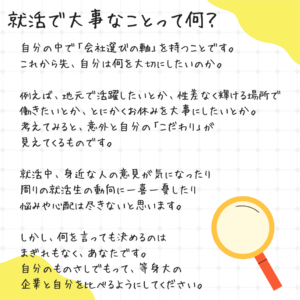 就活で大事なことって何?
自分の中で「会社選びの軸」を持つことです。
これから先、自分は何を大切にしたいのか。
例えば、地元で活躍したいとか、性差なく輝ける場所で
働きたいとか、とにかくお休みを大事にしたいとか。
考えてみると、意外と自分の「こだわり」が
見えてくるものです。
就活中、身近な人の意見が気になったり
周りの就活生の動向に一喜一憂したり
悩みや心配は尽きないと思います。
しかし、何を言っても決めるのは
まぎれもなく、あなたです。
自分のものさしでもって、等身大の
企業と自分を比べるようにしてください。